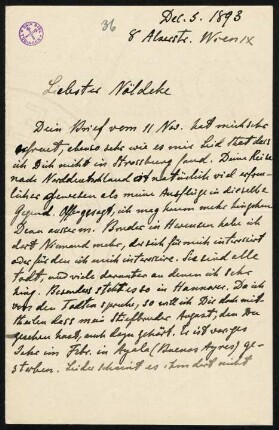 36
Dec. 5. 1893
8 Alserstr. Wien IX
Liebster Nöldeke
Dein Brief vom 11 Nov. hat mich sehr
erfreut, ebenso sehr wie es mir Leid that dass
ich Dich nicht in Strassburg fand. Deine Reise
nach Norddeutschland ist natürlich viel erfreu-
licher gewesen als meine Ausflüge in dieselbe
Gegend. Offen gesagt, ich mag kaum mehr hingehen
Denn ausser m. Bruder in Hercensen habe ich
dort Niemand mehr, der sich für mich interessirt
oder für den ich mich interessire. Sie sind alle
todt, und viele darunter an denen ich sehr
hing. Besonders steht es so in Hannover. Da ich
von den Todten spreche, so will ich Dir doch mit-
theilen dass mein Stiefbruder August, den Du
gesehen hast, auch dazu gehört. Er ist voriges
Jahr im Febr. in Ayala (Buenos Ayres) ge-
storben. Leider scheint es ihm dort nicht